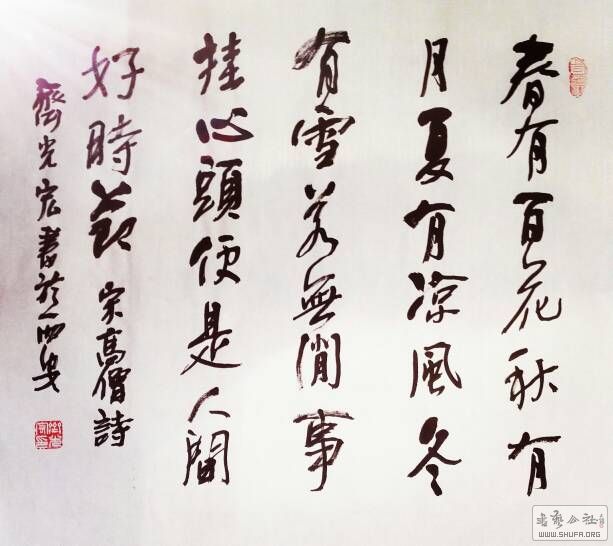 春有百花秋有
月夏有涼風冬
有雪若無閒事
挂心頭便是人間
好時節 宋高僧詩
齊光宏書於西安
書藝公社
WWW.SHUFA.ORG